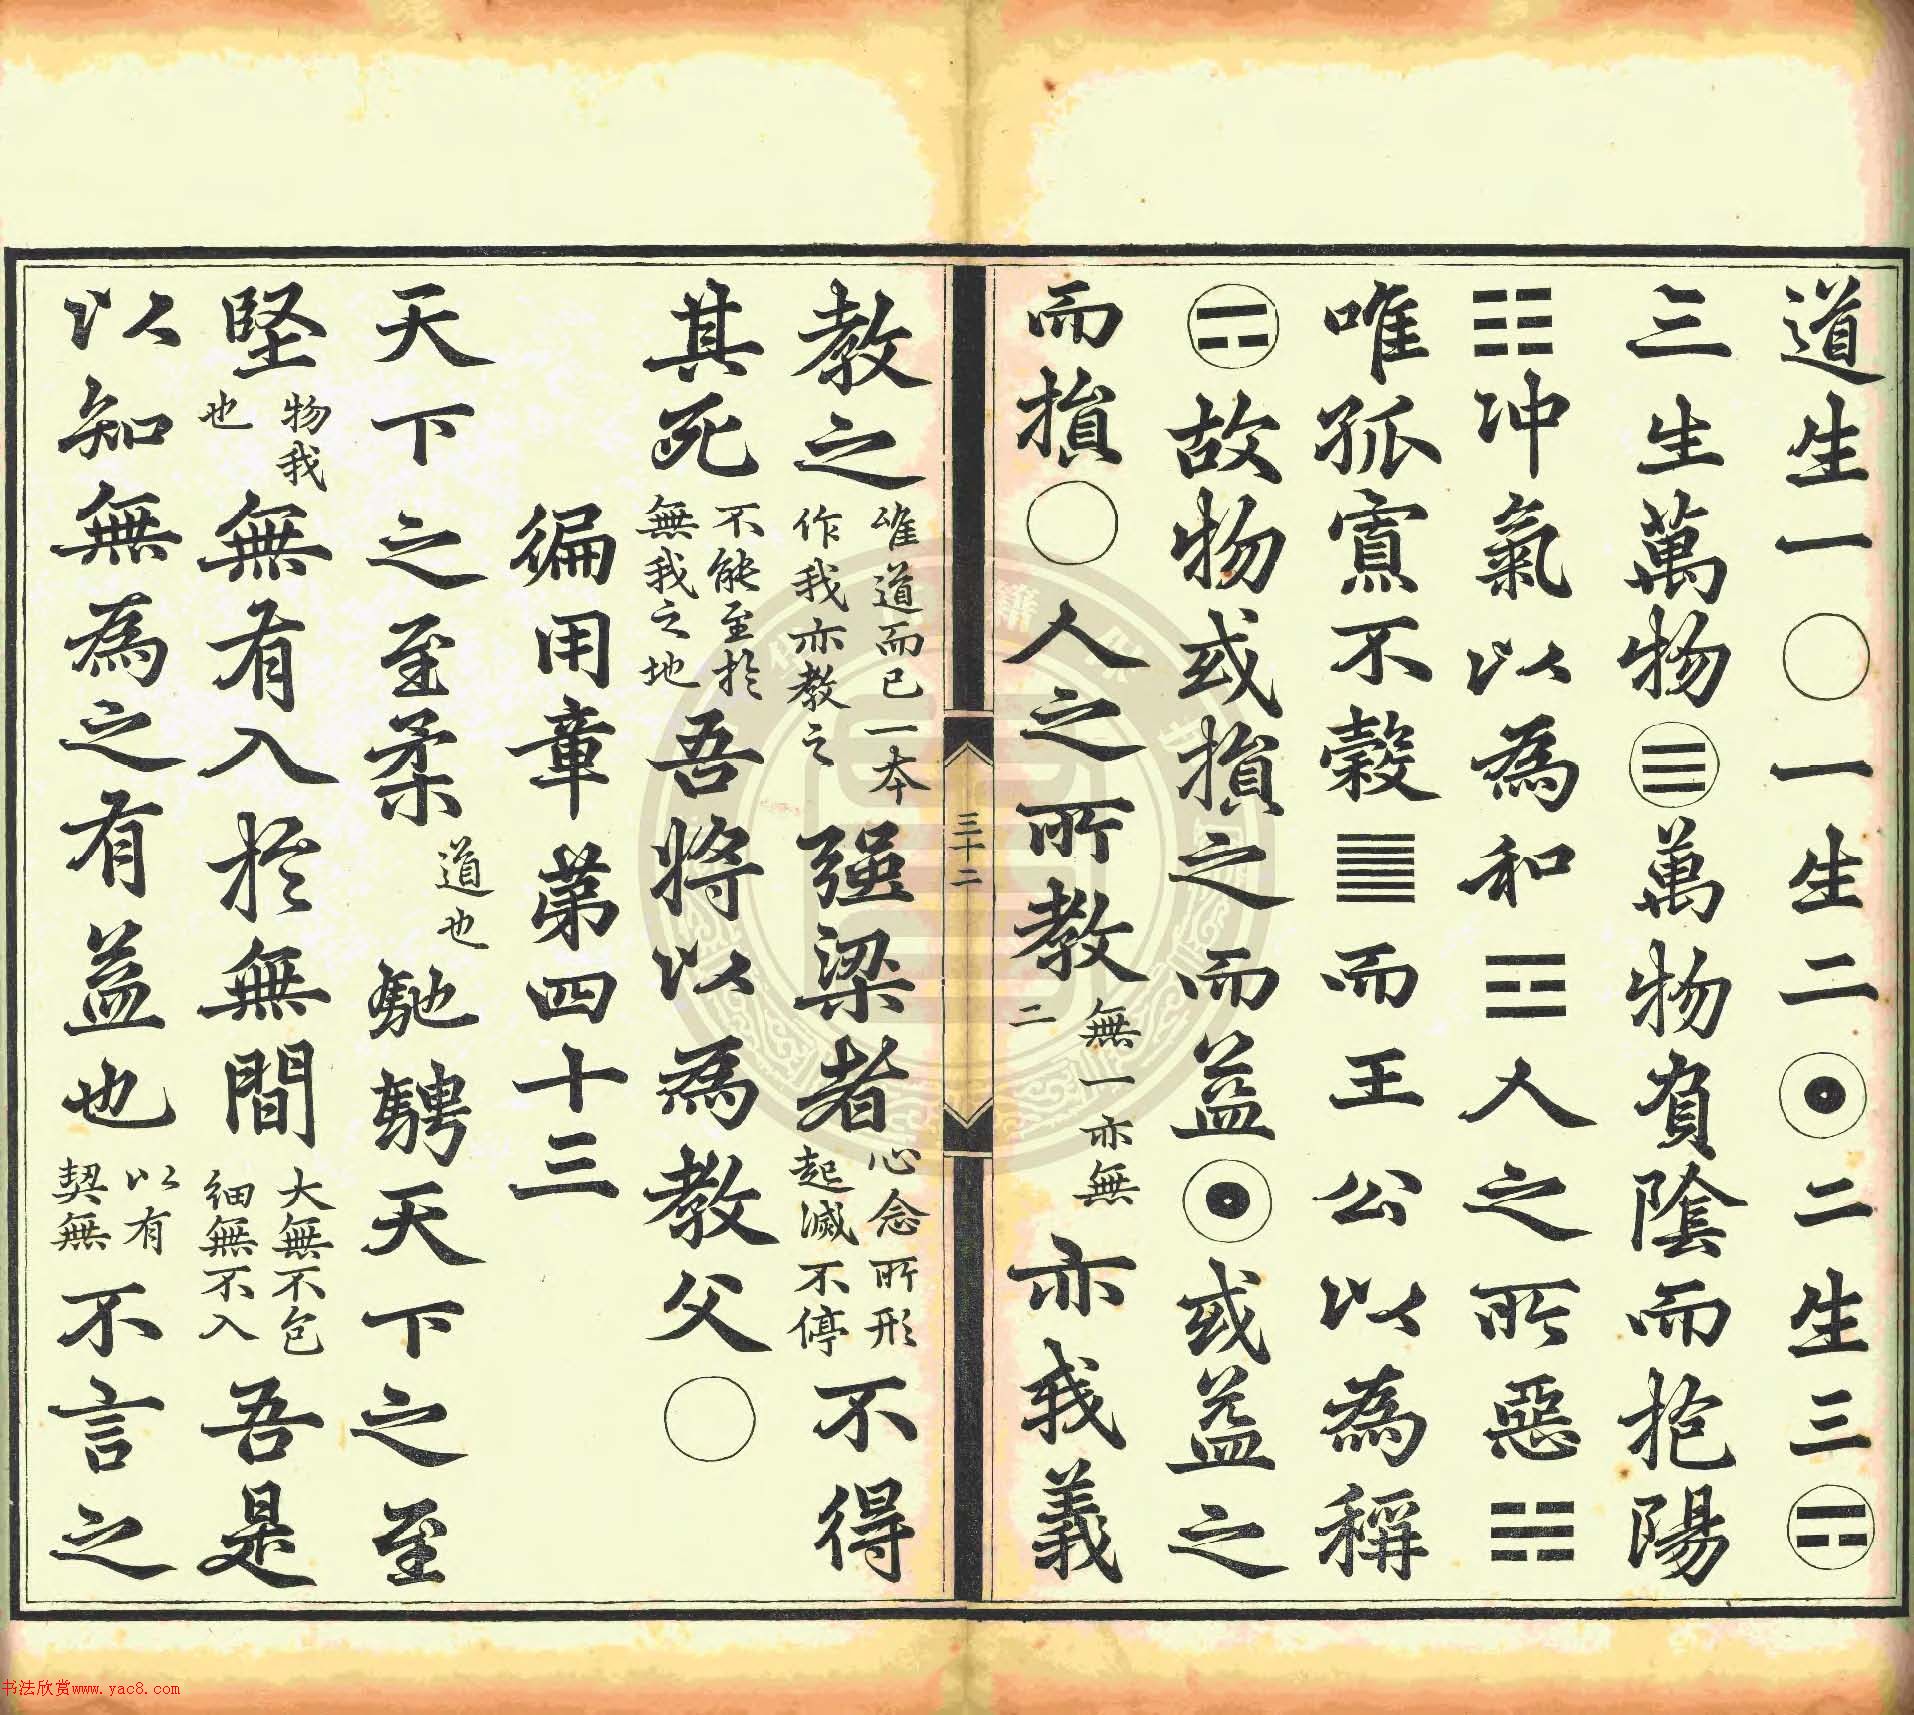 道生一○一生二☉二生三⚍
三生萬物☰萬物負陰而抱陽
☷冲氣以為和☲人之所惡䷁
唯孤寡不穀䷀而王公以為稱
⚍故物或損之而益☉或益之
而損○人之所教無一亦無二亦我義
教之唯道而已一本作我亦教之强梁者心念所形起滅不停不得
其死不能至於無我之地吾將以為教父○
徧用章第四十三
天下之至柔道也馳騁天下之至
堅物我也無有入於無間大無不包細無不入吾是
以知無為之有益也以有契無不言之
三十二
书法欣赏www.yac8.com